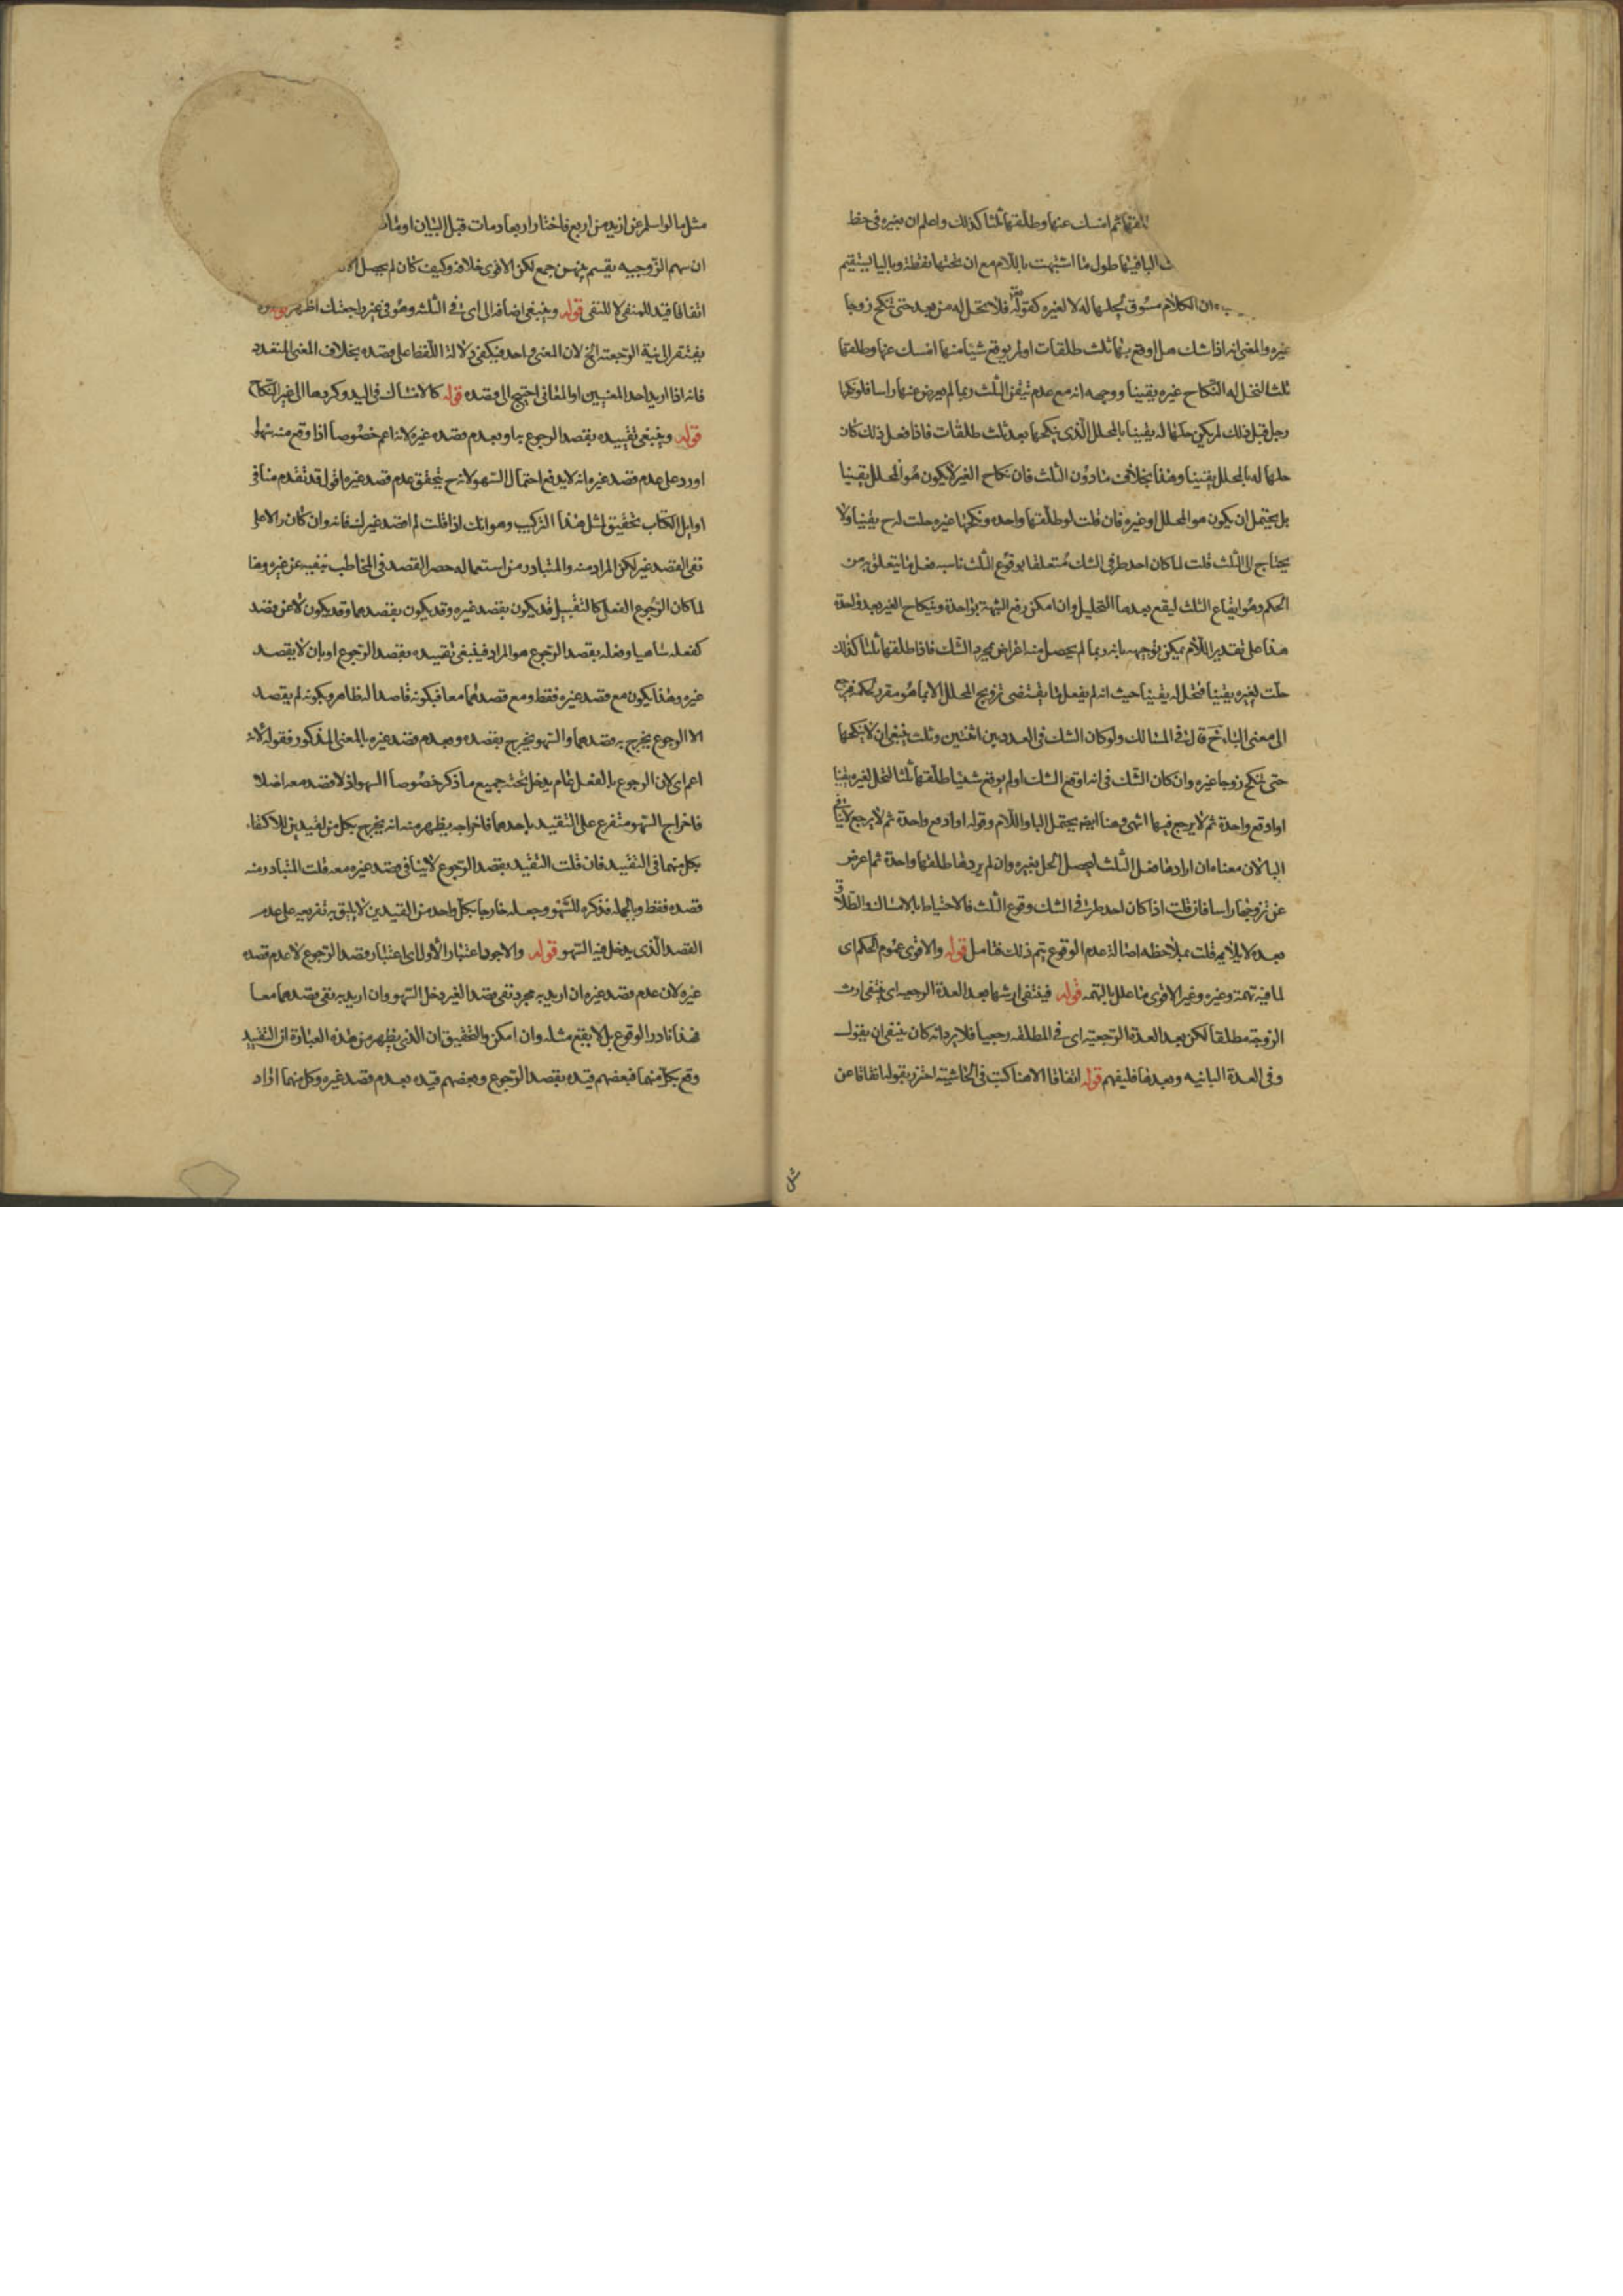 ثم امسك عنها وطلقها ثلثا كذلك واعلم ان بغيره فى خط
الباقيها طول ما اشتبهت باللام مع ان تحتها نقطة وباليا يستقيم
ان الكلام مسوق لحلها له لا لغيره كقوله تعالى فلا تحل له من بعد حتى تنكح زوجا
غيره والمعنى انه اذا شك هل اوقع بها ثلث طلقات او لم يوقع شيئا منها امسك عنها وطلقها
ثلثا لتحل له النكاح غيره يقينا ووجهه انه مع عدم تيقن الثلث ربما لم يعرض عنها راسا فلو نكحها
رجل قبل ذلك لم يكن حلها له يقينا بالمحلل الذى ينكحها بعد ثلث طلقات فاذا فعل ذلك كان
حلها له بالمحلل يقينا وهذا بخلاف مادون الثلث فان نكاح الغير لا يكون هو المحلل يقينا
بل يحتمل ان يكون هو المحلل او غيره فان قلت لو طلقها واحده ونكحها غيره حلت له ح يقينا ولا
يحتاج الى الثلث قلت لما كان احد طرفى الشك متعلقا بوقوع الثلث ناسب فعل ما يتعلق به من
الحكم وهو ايقاع الثلث ليقع بعدها التحليل وان امكن رفع الشبهة بواحدة وبنكاح الغير بعد واحدة
هذا على تقدير اللام يمكن توجيهه بانه ربما لم يحصل منه اعراض بمجرد الشك فاذا طلقها ثلثا كذلك
حلت لغيره يقينا فتحل له يقينا حيث انه لم يفعل ما يقتضى تزويج المحلل الا بما هو مقرر بحكمه فيرجع
الى معنى الباء ح قال فى المسالك ولو كان الشك فى العددين اثنتين وثلث ينبغى ان لا ينكحها
حتى تنكح زوجا غيره وان كان الشك فى انه اوقع الشك او لم يوقع شيئا طلقها ثلثا لتحل لغيره يقينا
او اوقع واحدة ثم لا يرجع فيها انتهى وهنا ايضه يحتمل البا واللام وقوله او اوقع واحدة ثم لا يرجع لا ينافى
البا لان معناه ان ارادها فعل الثلث ليحصل الحل بغيره وان لم يردها طلقها واحدة ثم اعرض
عن تزويجها راسا فان قلت اذا كان احد طرفى الشك وقوع الثلث فالاحتياط بالامساك والطلاق
بعده لا يلايمه قلت بملاحظه اصالة عدم الوقوع يتم ذلك فتامل قوله والاقوى عموم الحكم اى
لما فيه تهمة وغيره وغير الاقوى ما علل بالتهمه قوله فينتفى ارثها بعد العدة الرجعيه اى ينتفى ارث
الزوجة مطلقا لكن بعد العدة الرجعية اى فى المطلقه رجعيا فلا يرد انه كان ينبغى ان يقول
وفى العدة الباينه وبعدها فليفهم قوله اتفاقا الا هنا كتب فى الحاشية احترز بقوله اتفاقا عن
مثل
مثل ما لو اسلم عن ازيد من اربع فاختار اربعا ومات قبل البيان او مات
ان سهم الزوجيه يقسم بينهن جمع لكن الاقوى خلافه وكيف كان لم يحصل
اتفاقا قيد للمنفى لا للنفى قوله وينبغى اضافه الى اى فى الثلثه وهو فى غير راجعتك اظهر قوله
يفتقر الى نية الرجعة الخ لان المعنى واحد فيكفى دلالة اللفظ على قصده بخلاف المعنى المتعدد
فانه اذا اريد احد المعنيين او المعانى احتيج الى قصده قوله كالامساك فى اليد وكردها الى غير النكاح
قوله وينبغى تقييده بقصد الرجوع به او بعدم قصد غيره لانه اعم خصوصا اذا وقع منه سهوا
اورد على عدم قصد غيره انه لا يدفع احتمال السهو لانه ح يتحقق عدم قصد غيره اقول قد تقدم منا فى
اوايل الكتاب تحقيق لمثل هذا التركيب وهو انك اذا قلت لم اقصد غيرك فانه وان كان دالا على
نفى القصد غير لكن المراد منه والمتبادر من استعماله حصر القصد فى المخاطب بنفيه عن غيره وهنا
لما كان الرجوع الفعل كالتقبيل قد يكون بقصد غيره وقد يكون بقصدهما وقد يكون لا عن قصد
كفعله ساهيا وفعله بقصد الرجوع هو المراد فينبغى تقييده بقصد الرجوع او بان لا يقصد
غيره وهذا يكون مع قصد غيره فقط ومع قصدهما معا فبكونه قاصدا له ظاهر وبكونه لم يقصد
الا الرجوع يخرج به قصدهما والسهو يخرج بقصده وبعدم قصد غيره بالمعنى المذكور فقوله لانه
اعم اى لان الرجوع بالفعل عام يدخل تحته جميع ما ذكر خصوصا السهو اذ لا قصد معه اصلا
فاخراج السهو متفرع على التقييد باحدهما فاخراجه يظهر منه انه يخرج بكل من القيدين للاكتفاء
بكل منهما فى التقييد فان قلت التقييد بقصد الرجوع لا ينافى قصد غيره معه قلت المتبادر منه
قصده فقط وبالجمله فذكره للسهو وجعله خارجا بكل واحد من القيدين لا يليق به تفريعه على عدم
القصد الذى يدخل فيه السهو قوله والاجود اعتبار الاول اى اعتبار قصد الرجوع لا عدم قصد
غيره لان عدم قصد غيره ان اريد به مجرد نفى قصد الغير دخل السهو وان اريد به نفى قصدهما معا
فهذا نادر الوقوع بل لا يقع مثله وان امكن والتحقيق ان الذى يظهر من هذه العبارة ان التقييد
وقع بكل منهما فبعضهم قيده بقصد الرجوع وبعضهم قيده بعدم قصد غيره وكل منهما اراد